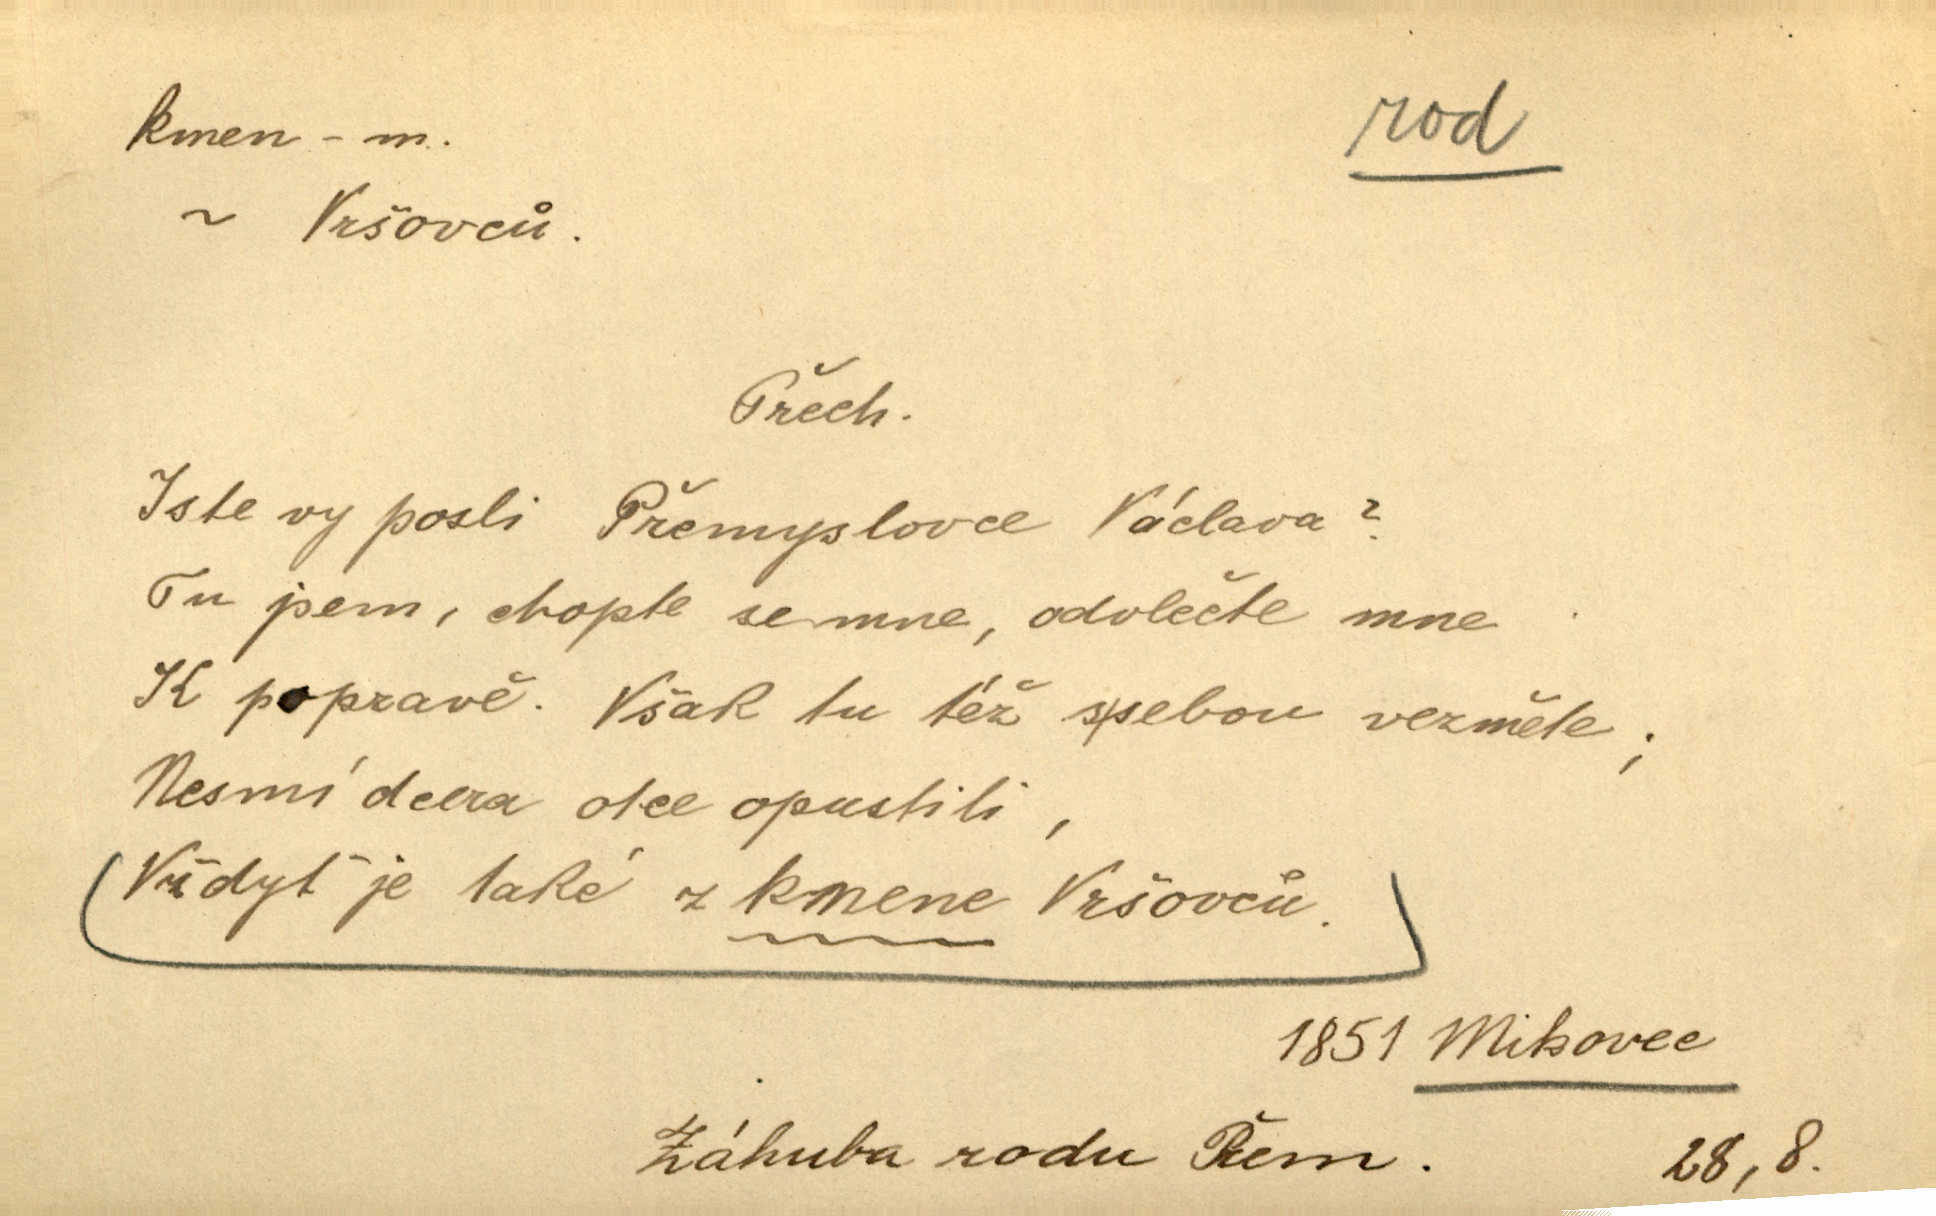 kmen - m.
rod
~ Vršovců.
Třech.
Jste vy posli Přemyslovce Václava?
Tu jsem, chopte se mne, odvlečte mne
K popravě. Však tu též s sebou vezměte;
Nesmí dcera otce opustiti,
Vždyť je také z kmene Vršovců.
1851 Mikovec
Záhuba rodu Přem. 28, 8.